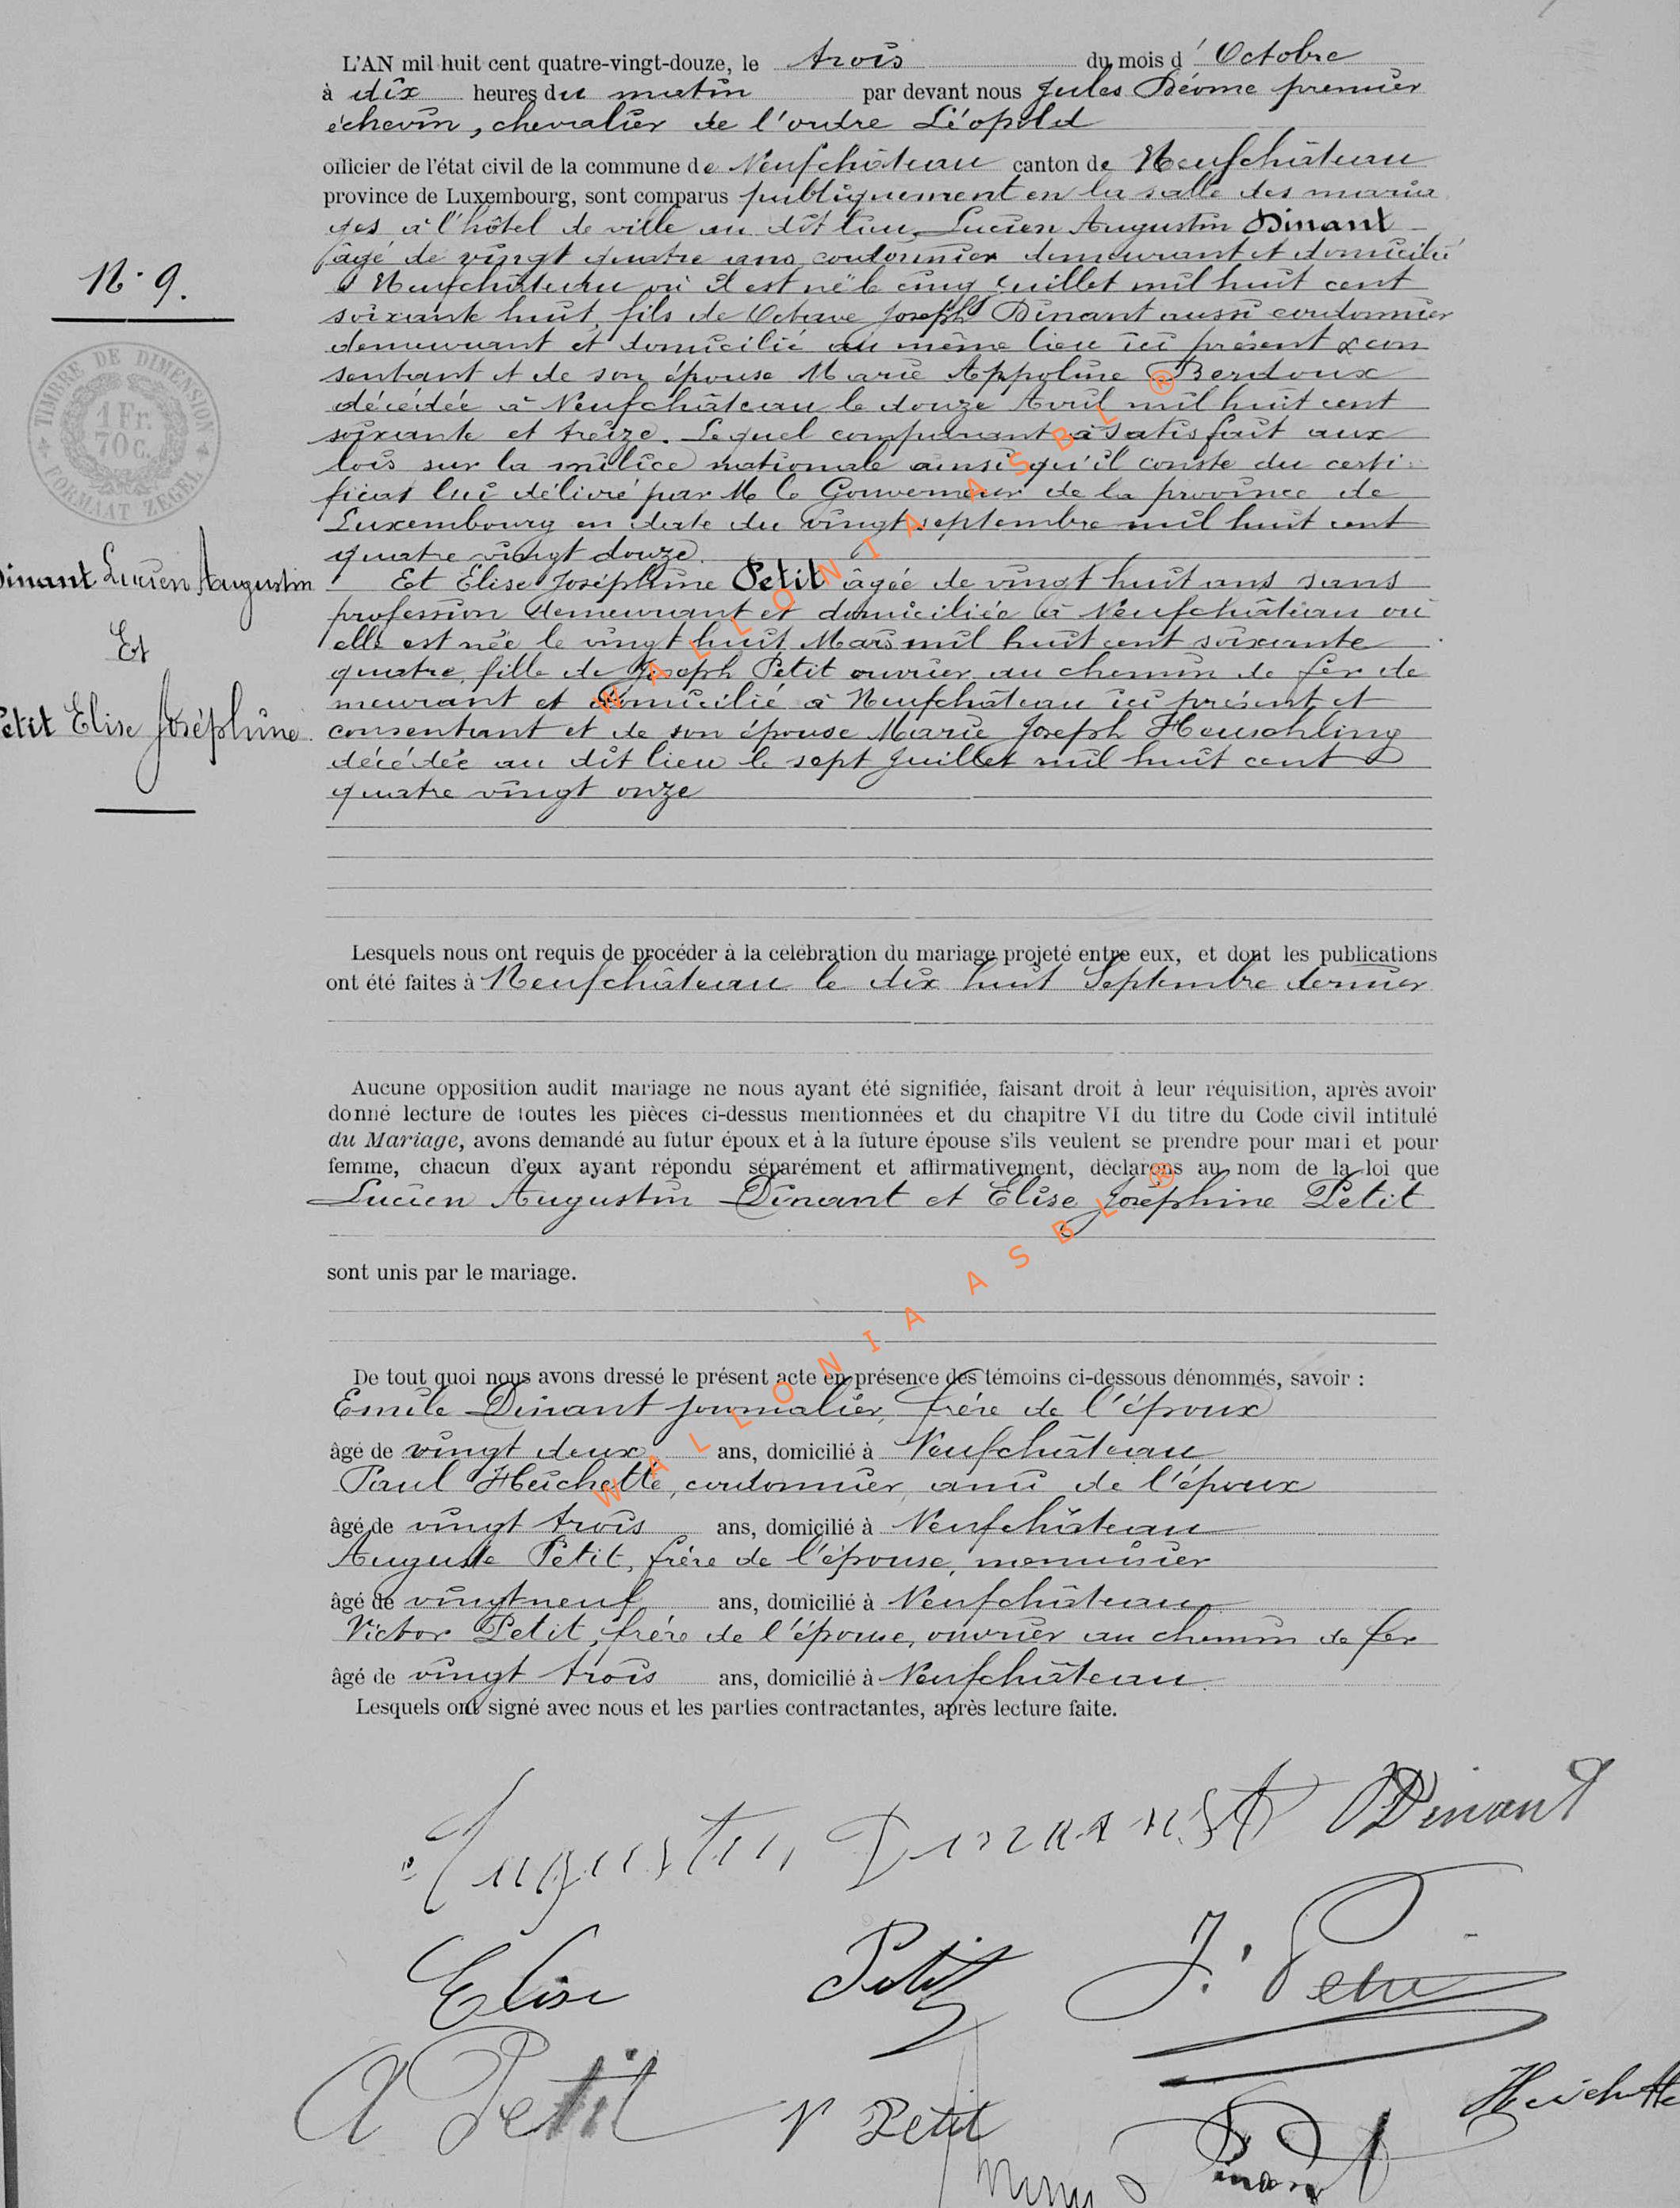 L'AN mil huit cent quatre-vingt-douze, le trois du mois d'Octobre
à dix heures du matin par devant nous Jules Déome premier
échevin, chevalier de l'ordre Léopold
officier de l'état civil de la commune de Neufchâteau canton de Neufchâteau
province de Luxembourg, sont comparus publiquement en la salle des maria
ges à l'hôtel de ville au dit lieu, Lucien Augustin Dinant
âgé de vingt quatre ans, cordonnier demeurant et domicilié
à Neufchâteau où il est né le cinq juillet mil huit cent
soixante huit, fils de Octave Joseph Dinant aussi cordonnier
demeurant et domicilié au même lieu ici présent & con
sentant et de son épouse Marie Appoline Berdoux
décédée à Neufchâteau le douze Avril mil huit cent
soixante et treize. Lequel comparant a satisfait aux
lois sur la milice nationale ainsi qu'il conste du certi
ficat lui délivré par M le Gouverneur de la province de
Luxembourg en date du vingt septembre mil huit cent
quatre vingt douze.
Et Elise Joséphine Petit âgée de vingt huit ans, sans
profession demeurant et domiciliée à Neufchâteau où
elle est née le vingt huit Mars mil huit cent soixante
quatre, fille de Joseph Petit ouvrier au chemin de fer de
meurant et domicilié à Neufchâteau ici présent et
consentant et de son épouse Marie Joseph Heuschling
décédée au dit lieu le sept Juillet mil huit cent
quatre vingt onze
N° 9.
TIMBRE DE DIMENSION
1 Fr.
70 c.
FORMAAT ZEGEL
Dinant Lucien Augustin
Et
Petit Elise Joséphine.
Lesquels nous ont requis de procéder à la célébration du mariage projeté entre eux, et dont les publications
ont été faites à Neufchâteau le dix huit Septembre dernier
Aucune opposition audit mariage ne nous ayant été signifiée, faisant droit à leur réquisition, après avoir
donné lecture de toutes les pièces ci-dessus mentionnées et du chapitre VI du titre du Code civil intitulé
du Mariage, avons demandé au futur époux et à la future épouse s'ils veulent se prendre pour mari et pour
femme, chacun d'eux ayant répondu séparément et affirmativement, déclarons au nom de la loi que
Lucien Augustin Dinant et Elise Joséphine Petit
sont unis par le mariage.
De tout quoi nous avons dressé le présent acte en présence des témoins ci-dessous dénommés, savoir :
Emile Dinant journalier, frère de l'époux
âgé de vingt deux ans, domicilié à Neufchâteau
Paul Heichette, cordonnier, ami de l'époux
âgé de vingt trois ans, domicilié à Neufchâteau
Auguste Petit, frère de l'épouse, menuisier
âgé de vingt neuf ans, domicilié à Neufchâteau
Victor Petit, frère de l'épouse, ouvrier au chemin de fer
âgé de vingt trois ans, domicilié à Neufchâteau.
Lesquels ont signé avec nous et les parties contractantes, après lecture faite.
Augustin Dinanst O Dinant
Elise Petit J. Petit
A Petit V Petit Heichette
Dinant
WALLONIA ASBL ®
WALLONIA ASBL ®